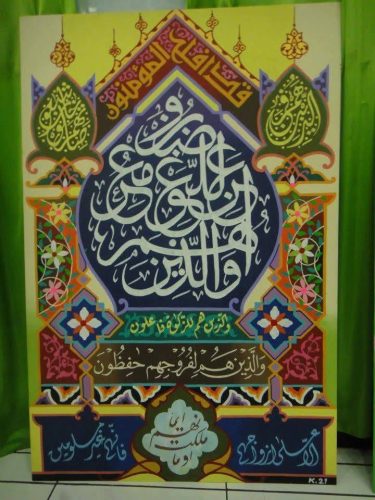 قد افلح المؤمنون
الذين هم في
صلاتهم خاشعون
والذين هم عن اللغو معرضون
والذين هم للزكوة فاعلون
وَالَّذِينَ هُمْ لِفُرُوجِهِمْ حٰفِظُونَ
إلا على أزواجهم
او ما ملكت ايمانهم
فانهم غير ملومين
K.21